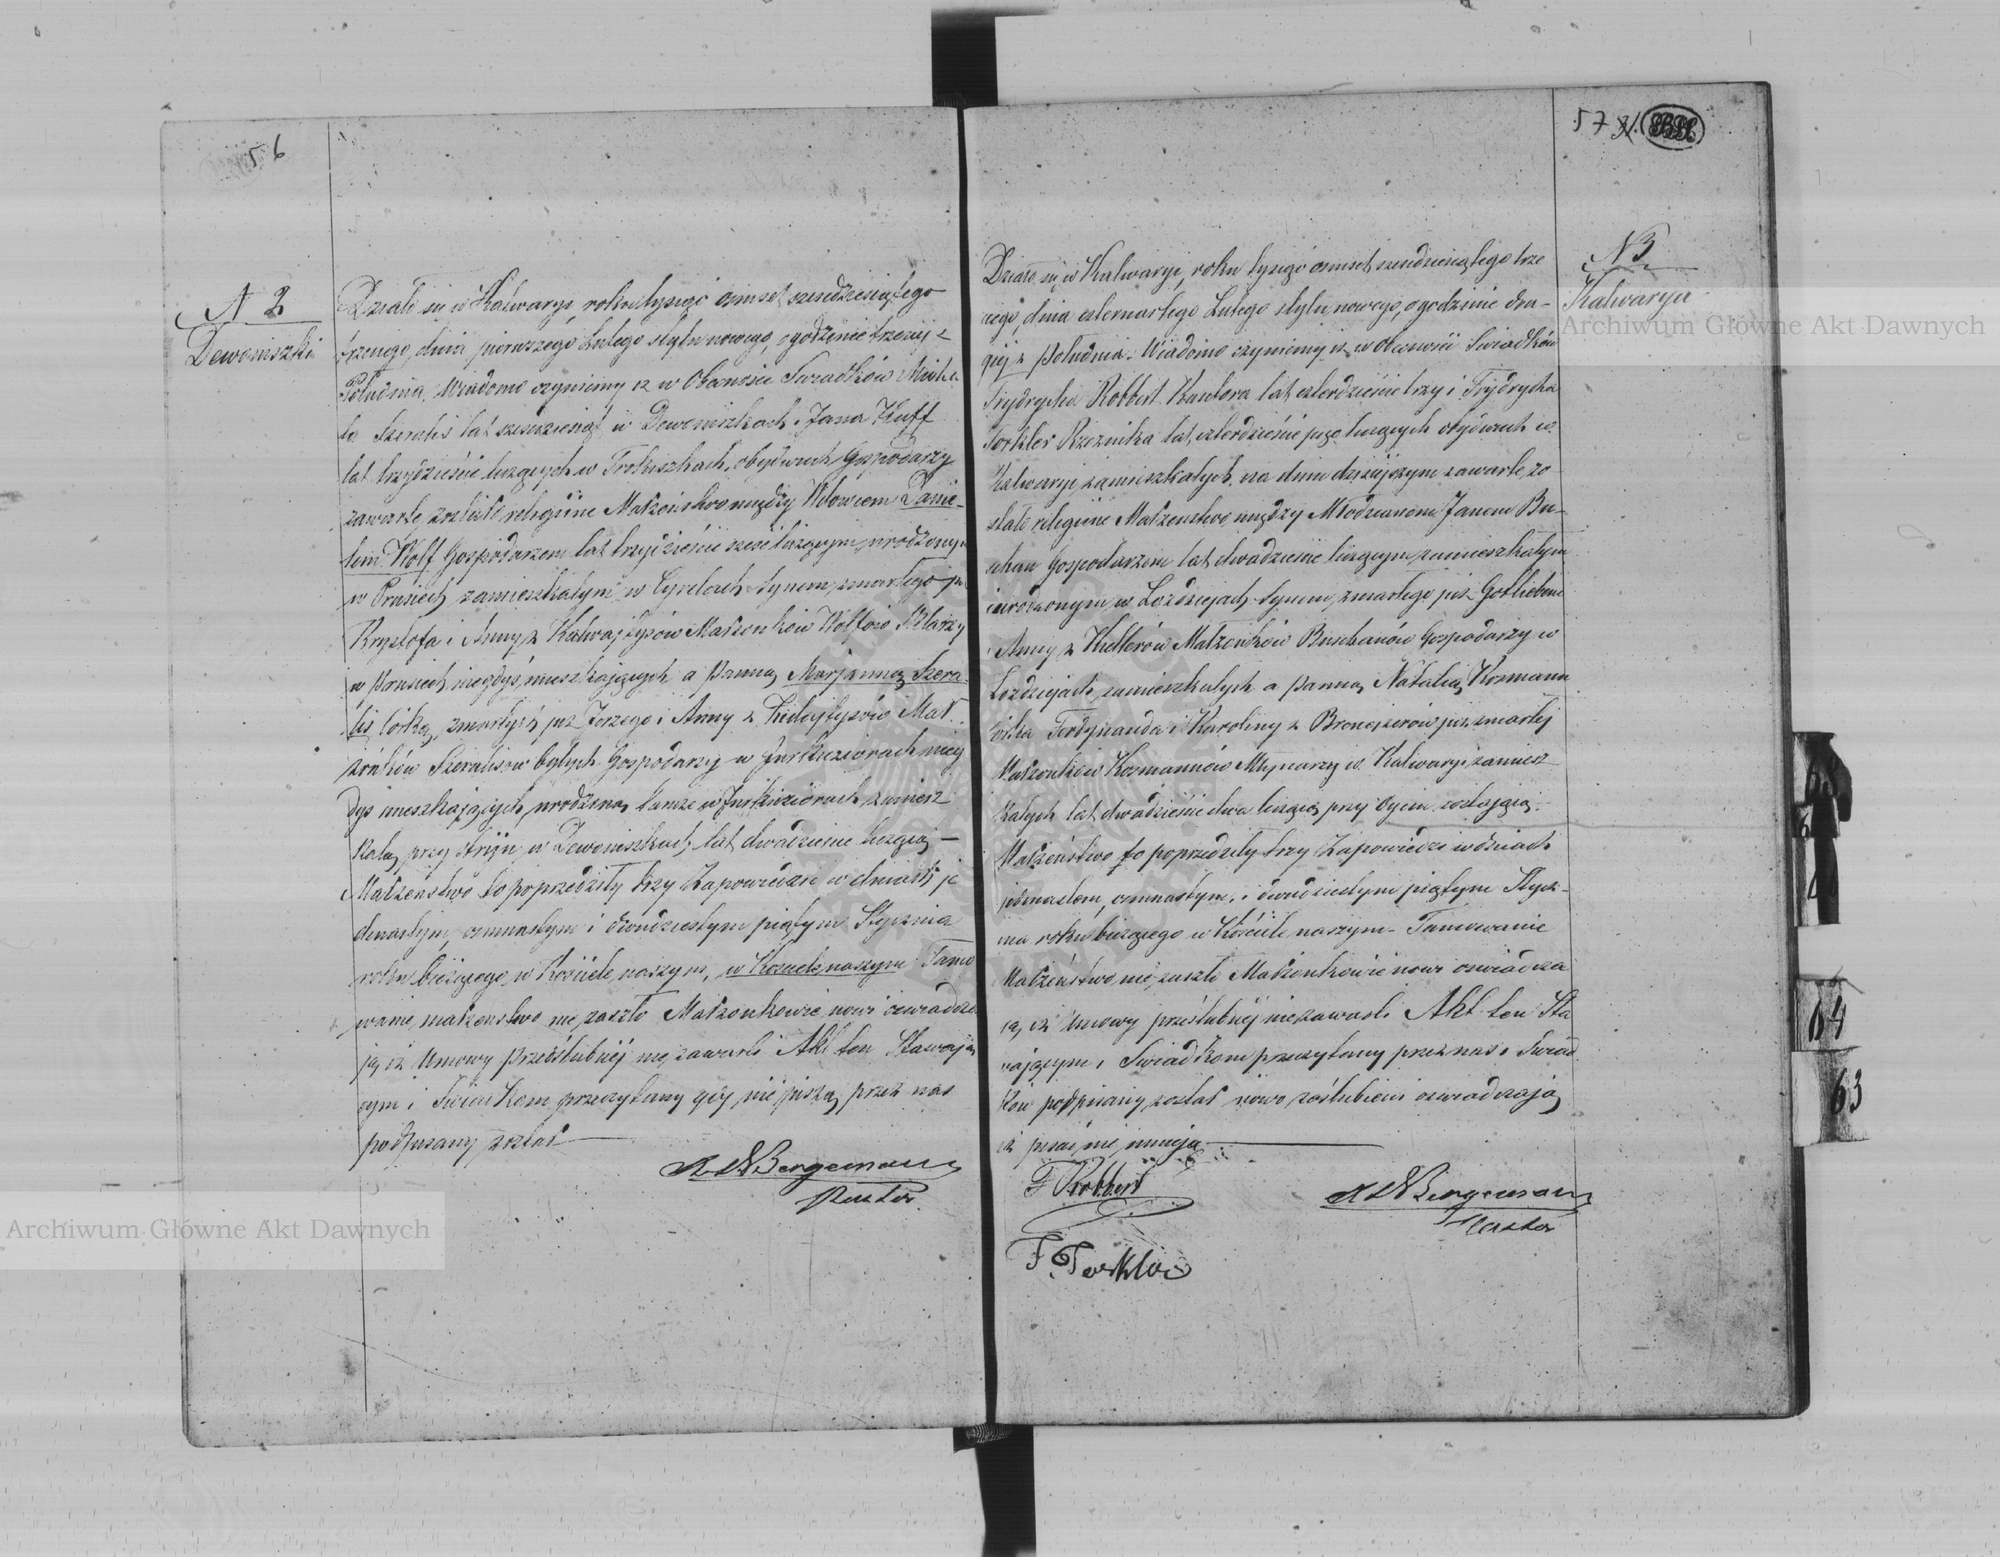 56
N 2
Dewoniszki
Działo się w Kalwaryi, roku tysiąc osimset sześdziesiątego
trzeciego, dnia pierwszego Lutego stylu nowego, o godzinie trzeciej z
Południa. Wiadomo czynimy iż w Obecności Świadków Micha
ła Szeralis lat sześdziesiąt w Dewoniszkach i Jana Kuff
lat trzydzieście liczących w Trokiszkach, obydwuch Gospodarzy
zawarte zostało religijne Małżeństwo między Wdowcem Danie-
lem Wolf Gospodarzem lat trzydzieście sześć liczącym, urodzonym
w Prusiech zamieszkałym w Cyrelach Synem zmarłego już
Krysztofa i Anny z Kalwajtysów Małżonków Wolfów
w Prusiech niegdyś mieszkających a Panną Marjanną Szera
lis córką, zmarłych już Jerzego i Anny z Małż
żonków Szeralisów byłych Gospodarzy w nieg
dyś mieszkających, urodzoną tamże w zamiesz
kałą przy Stryju w Dewoniszkach, lat dwadzieście liczącą —
Małżeństwo to poprzedziły trzy Zapowiedzi w dniach je
denastym, osmnastym i dwudziestym piątym Stycznia
roku bieżącego w Kościele naszym, w Kościele naszym Tamo
wanie małżeństwa nie zaszło Małżonkowie nowi oswiadcza
ją iż Umowy przedślubnéj nie zawarli Akt ten Stawają
cym i Świadkom przeczytany gdy nie piszą, przez nas
podpisany został
Bergemann
Pastor
57
N 3
Kalwaryja
Działo się w Kalwaryi, roku tysiąc osimset sześdziesiątego trze
ciego, dnia czternastego Lutego stylu nowego, o godzinie dru-
giéj z Południa. Wiadomo czynimy iż w obecności Świadków
Frydrycha Robbert Kantora lat czterdzieście trzy i Frydrycha
Torkler Rzeznika lat czterdzieście pięć liczących obydwuch w
Kalwaryi zamieszkałych, na dniu dzisiejszym zawarte zo
stało religijne Małżeństwo między Młodzianem Janem Bu-
chan Gospodarzem lat dwadzieście liczącym, zamieszkałym
i urodzonym w Łozdziejach Synem zmarłego już Gotlieba i
Anny z Kellerów Małżonków Buchanów Gospodarzy w
Łozdziejach zamieszkałych a Panną Natalią Kosmann
córka Ferdynanda i Karoliny z już zmarłej
Małżonków Kosmannów Młynarzy w Kalwaryi zamiesz
kałych lat dwadzieście dwa liczącą przy Ojcu zostającą.
Małżeństwo to poprzedziły trzy Zapowiedzi w dniach
jedenastem, osmnastym, i dwudziestym piątym Stycz-
nia roku bieżącego w Kościele naszym - Tamowanie
Małżeństwa nie zaszło Małżonkowie nowi oswiadcza
ją, iż Umowy przedślubnéj nie zawarli Akt ten Sta
wającym i Świadkom przeczytany przez nas i Świad
ków podpisany został nowo zaślubieni oswiadczają
iż pisać nie umieją
F Robbert
Bergemann
Pastor
F. Torkler
64
63
Archiwum Główne Akt Dawnych
Archiwum Główne Akt Dawnych